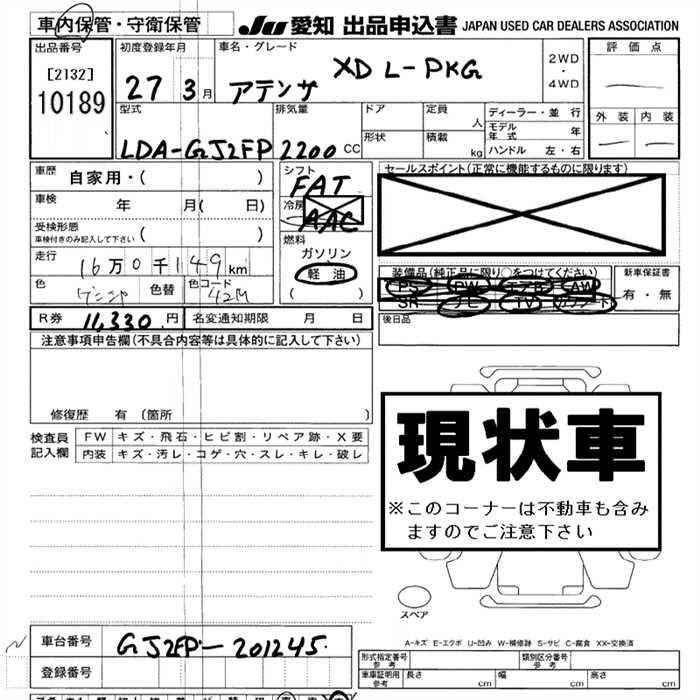 車内保管・守衛保管 JU 愛知 出品申込書 JAPAN USED CAR DEALERS ASSOCIATION
出品番号 [2132] 10189
初度登録年月 27 3月
車名・グレード アテンザ XD L-PKG
2WD・4WD
評価点
外装 内装
型式 LDA-GJ2FP
排気量 2200 CC
ドア 形状
定員 人 積載 kg
ディーラー・並行
モデル年式 年
ハンドル 左・右
車歴 自家用・( )
車検 年 月( 日)
受検形態 車検付きのみ記入して下さい ( )
走行 16万0千149km
色 色替 色コード 42M
シフト FAT
冷房 AAC
燃料 ガソリン 軽油 ( )
セールスポイント(正常に機能するものに限ります)
装備品(純正品に限り○をつけてください)
PS PW エアB AW
SR ナビ TV カワシート
新車保証書 有・無
後日品
R券 11,330円 名変通知期限 月 日
注意事項申告欄(不具合内容等は具体的に記入して下さい)
修復歴 有 〔箇所 〕
検査員記入欄
FW キズ・飛石・ヒビ割・リペア跡・X要
内装 キズ・汚レ・コゲ・穴・スレ・キレ・破レ
現状車
※このコーナーは不動車も含み
ますのでご注意下さい
スペア
A-キズ E-エクボ U-凹み W-補修跡 S-サビ C-腐食 XX-交換済
車台番号 GJ2FP-201245
登録番号
形式指定番号 参考 類別区分番号 参考
車庫証明用 参考 長さ cm 幅 cm 高さ cm